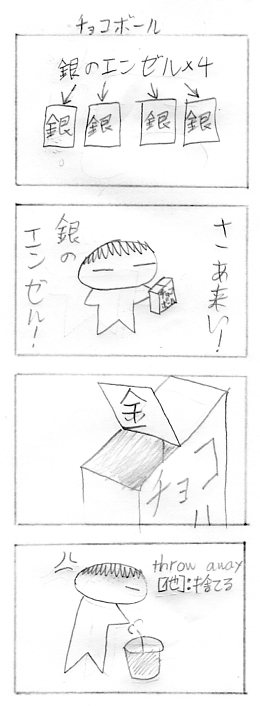 チョコボール
銀のエンゼル×4
銀 銀 銀 銀
さあ来い!
銀の
エンゼル!
金
チョコ
throw away
[他]:を捨てる